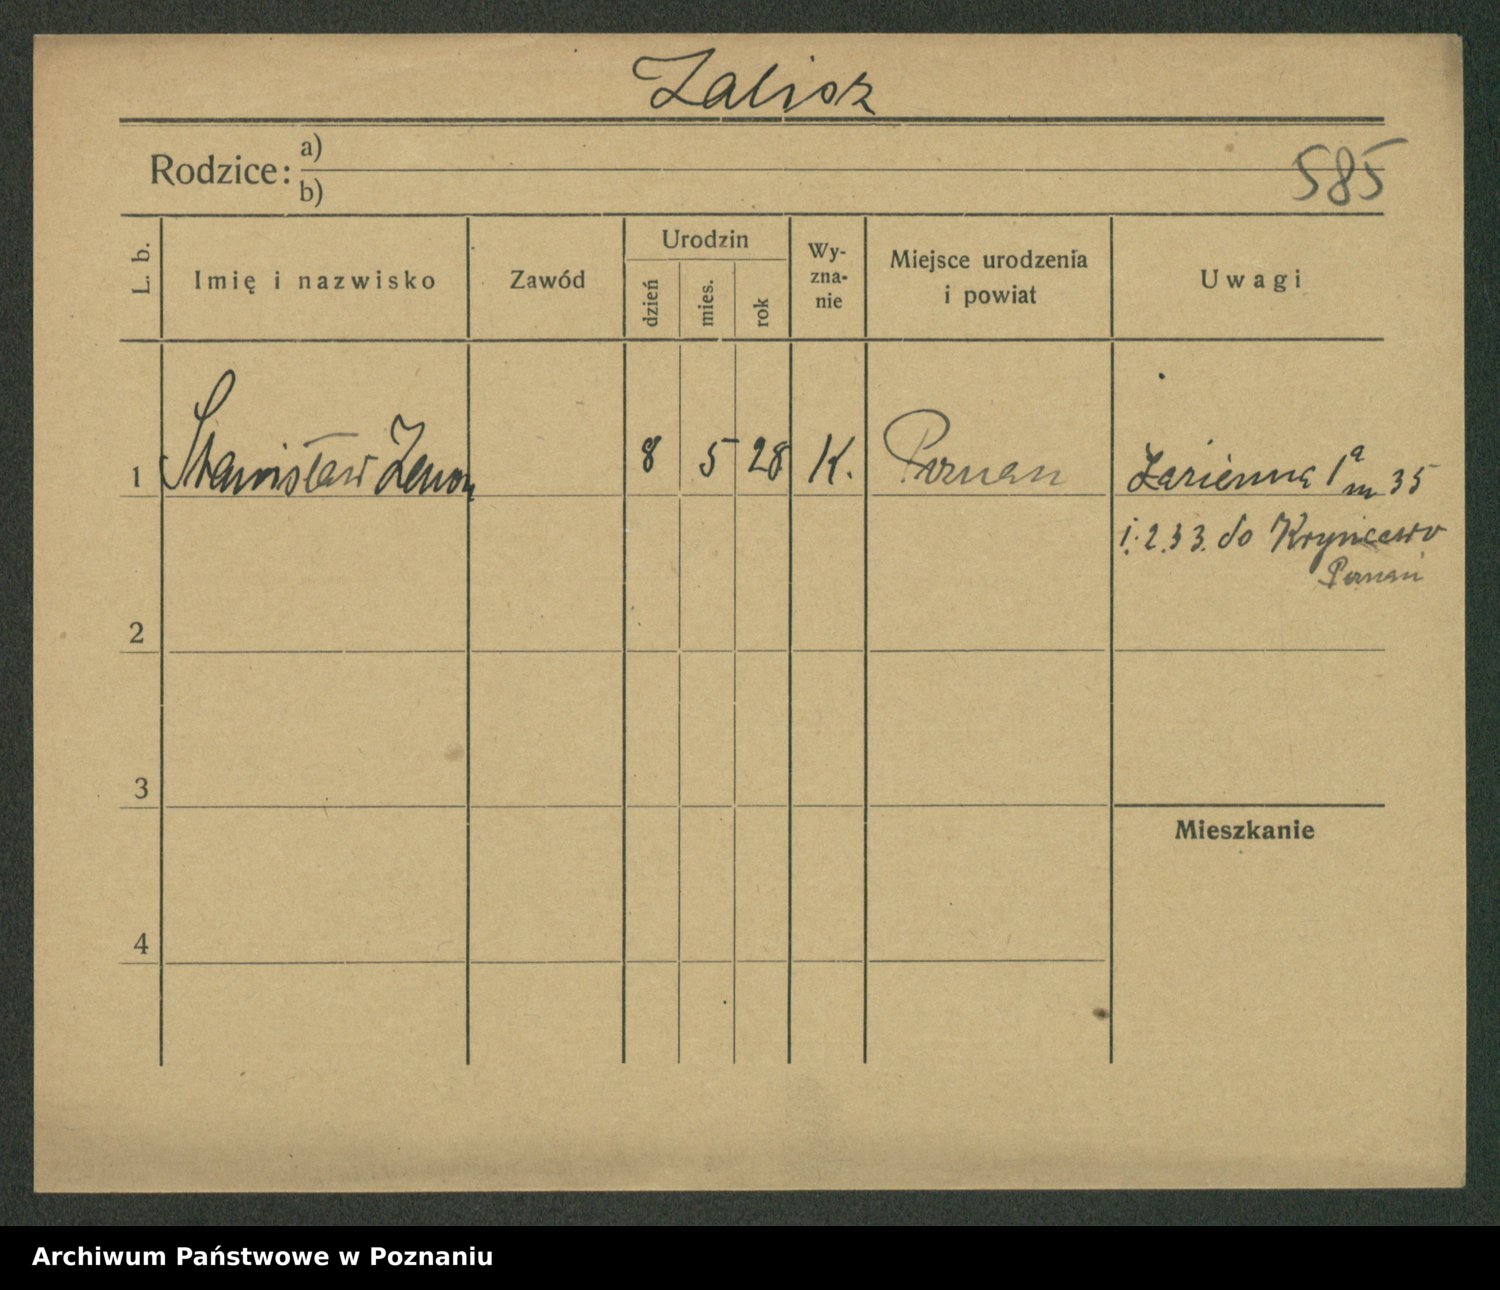 Zalisz
Rodzice: a)
b)
585
L. b.
Imię i nazwisko
Zawód
Urodzin
dzień
mies.
rok
Wy-
zna-
nie
Miejsce urodzenia
i powiat
Uwagi
1 Stanisław Zenon 8 5 28 K. Poznan Łazienna 1a m 35
1.2.33. do
Poznań
2
3
Mieszkanie
4
Archiwum Państwowe w Poznaniu